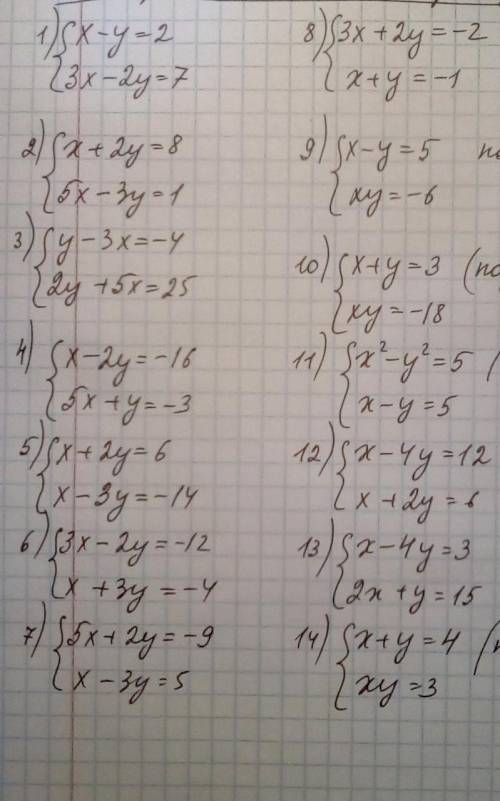 1) x-y=2
3x-2y=7
2) x+2y=8
5x-3y=1
3) y-3x=-4
2y+5x=25
4) x-2y=-16
5x+y=-3
5) x+2y=6
x-3y=-14
6) 3x-2y=-12
x+3y=-4
7) 5x+2y=-9
x-3y=5
8) 3x+2y=-2
x+y=-1
9) x-y=5
xy=-6
10) x+y=3
xy=-18
11) x²-y²=5
x-y=5
12) x-4y=12
x+2y=6
13) x-4y=3
2x+y=15
14) x+y=4
xy=3